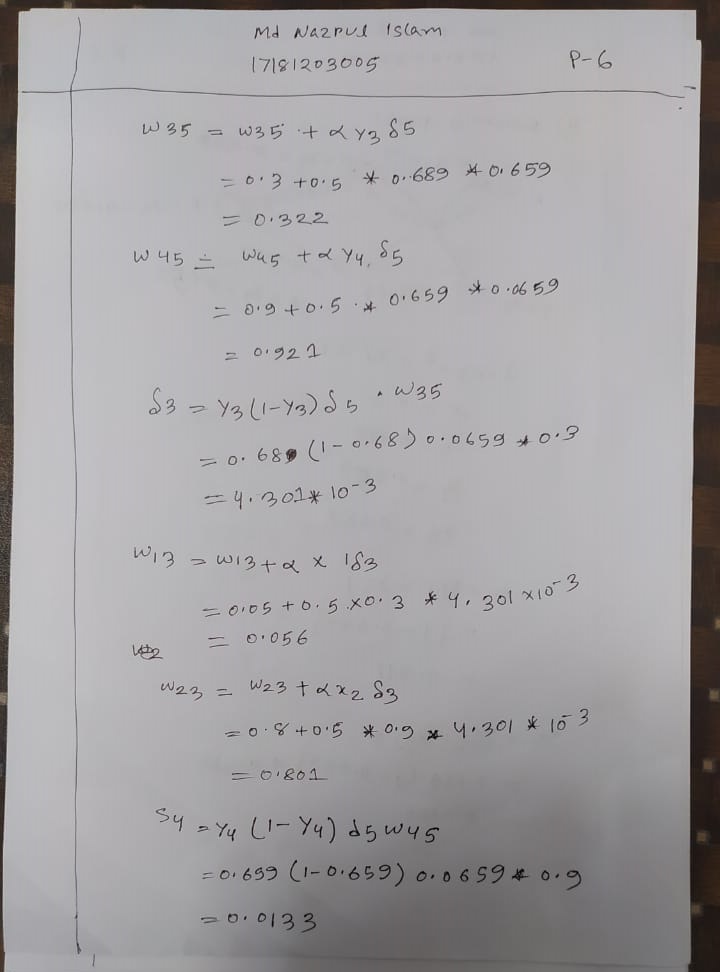 Md Nazrul Islam
17181203005
P-6
W35 = W35 + α Y3 δ5
= 0.3 + 0.5 * 0.689 * 0.659
= 0.322
W45 = W45 + α Y4 δ5
= 0.9 + 0.5 * 0.659 * 0.0659
= 0.921
δ3 = Y3 (1-Y3) δ5 . W35
= 0.68 (1-0.68) 0.0659 * 0.3
= 4.301 * 10-3
W13 = W13 + α x 1δ3
= 0.05 + 0.5 x 0.3 * 4.301 x 10-3
= 0.056
W23 = W23 + α x2 δ3
= 0.8 + 0.5 * 0.9 * 4.301 * 10-3
= 0.801
S4 = Y4 (1-Y4) d5 W45
= 0.659 (1-0.659) 0.0659 * 0.9
= 0.0133